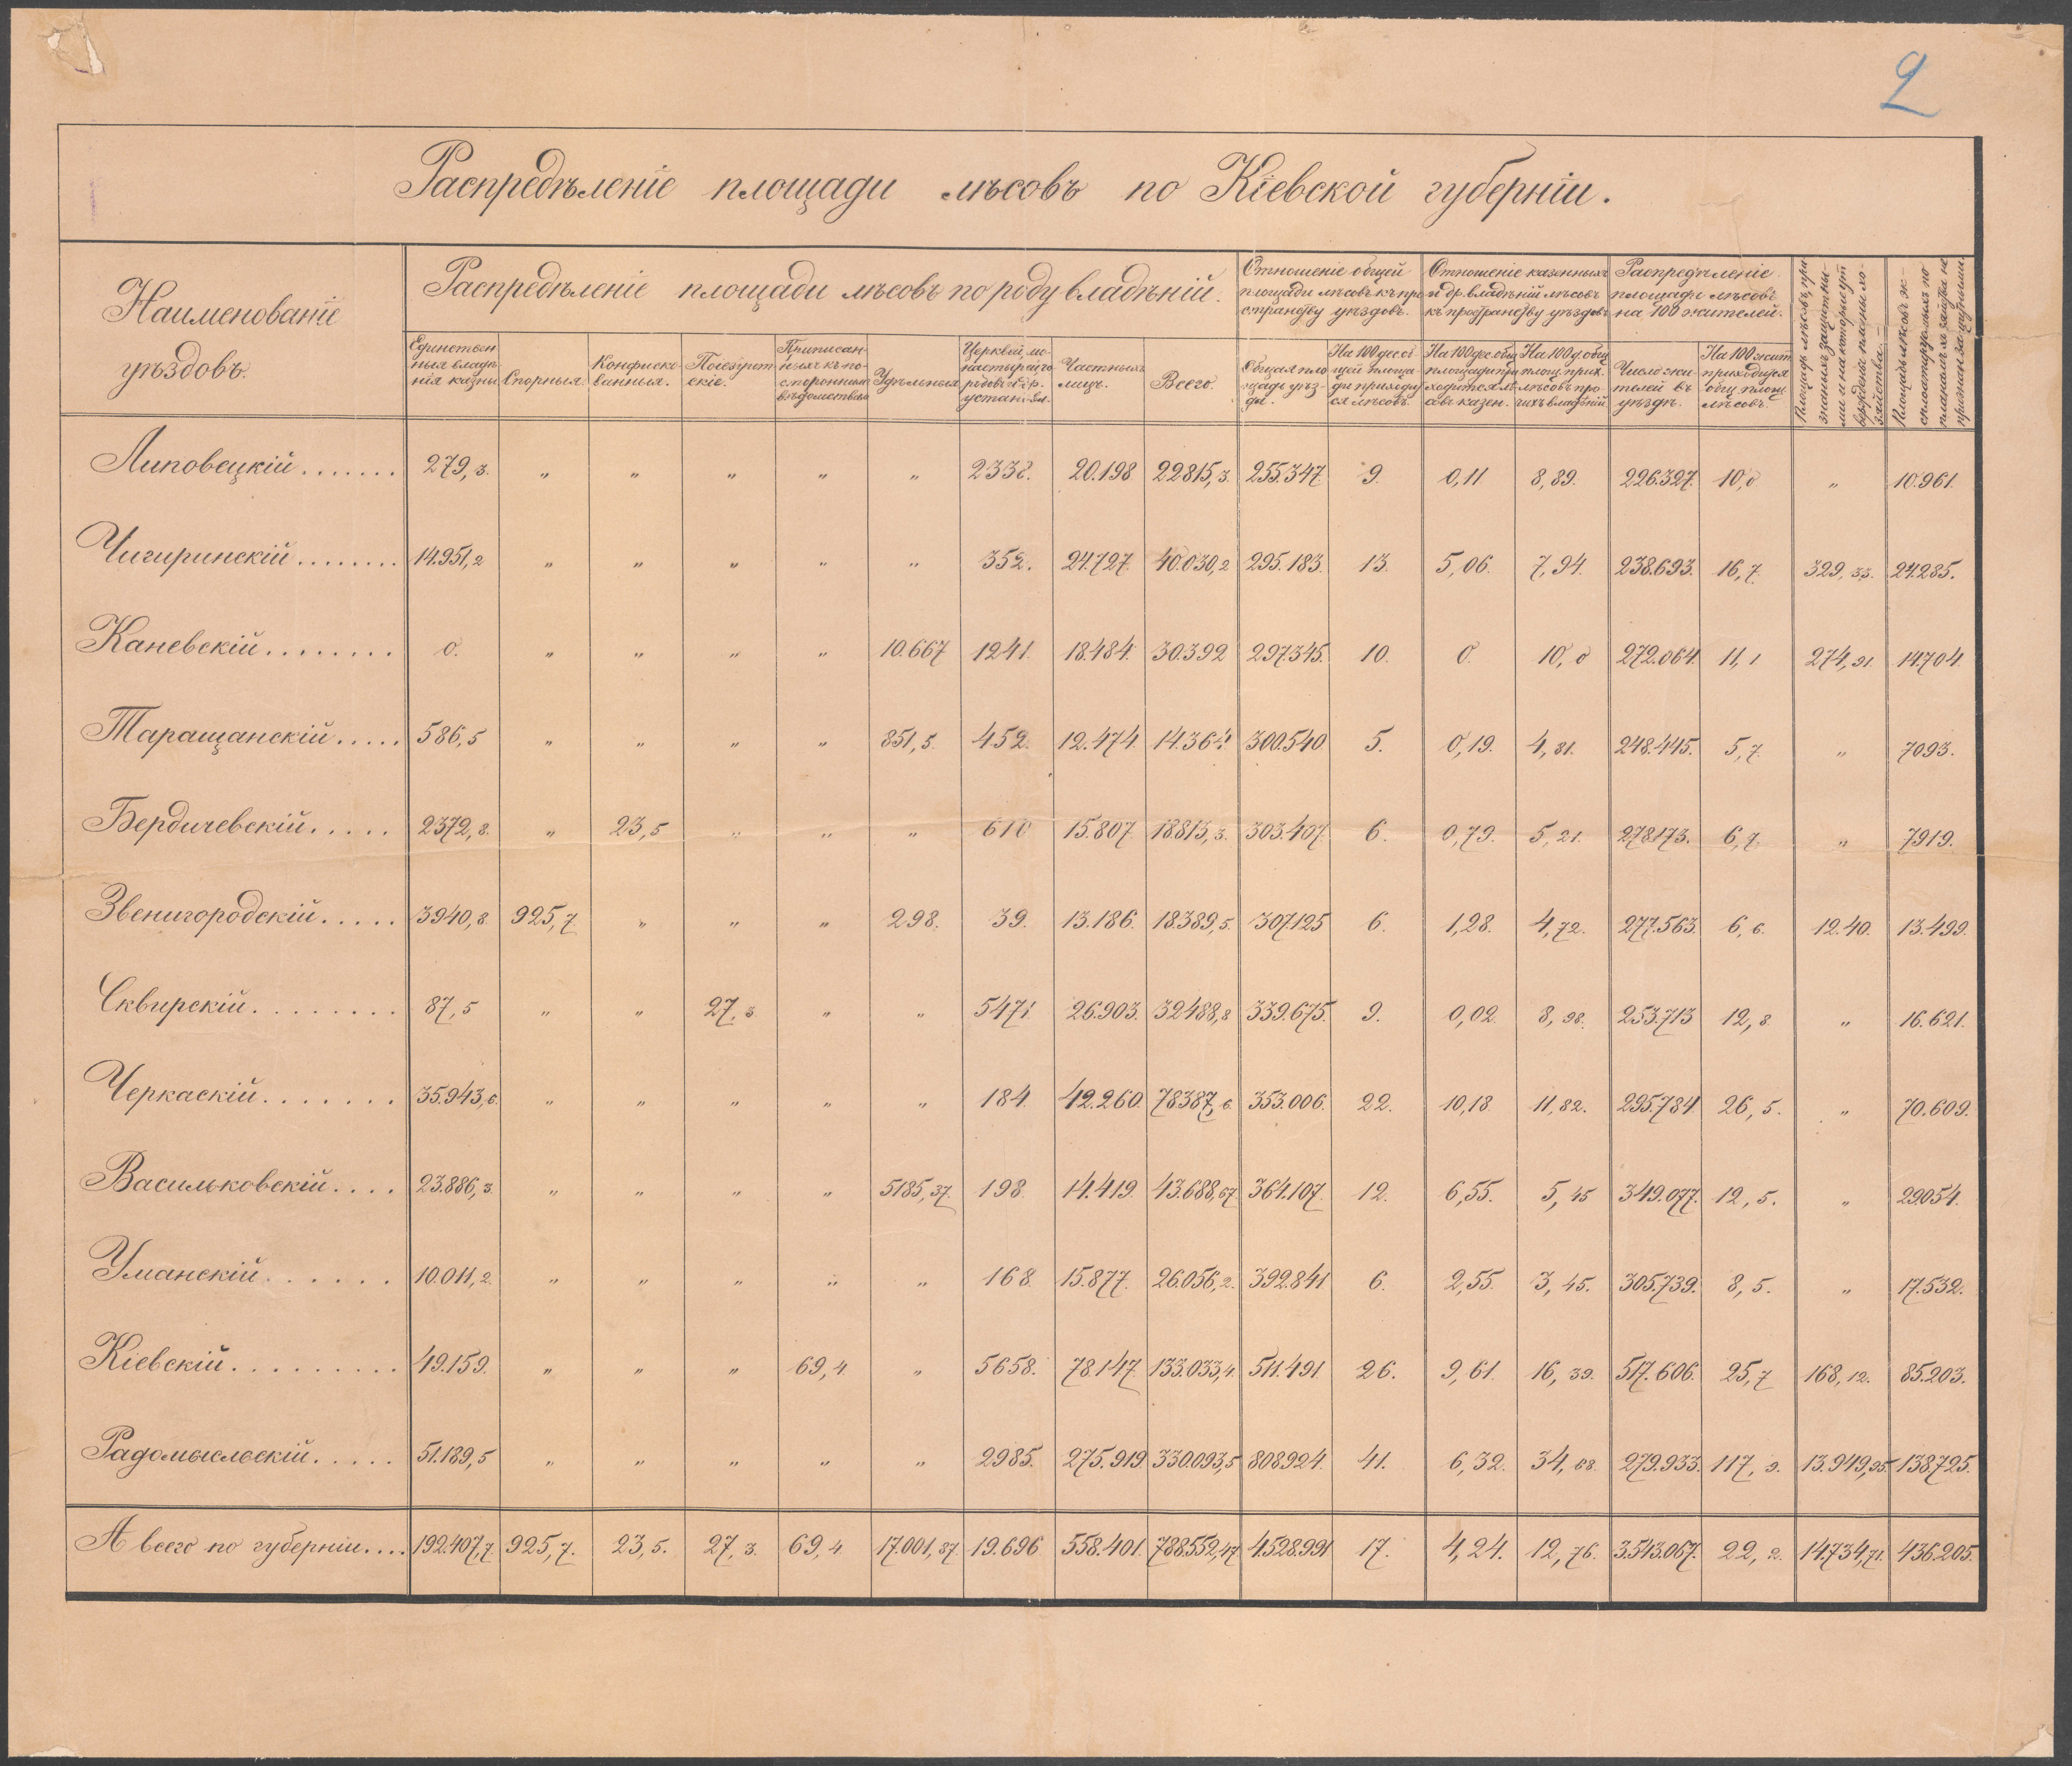 2
Распредѣленіе площади лѣсовъ по Кіевской губерніи.
Наименованіе
уѣздовъ.
Распредѣленіе площади лѣсовъ по роду владѣній.
Отношеніе общей
площади лѣсовъ къ про
странству уѣздовъ.
Отношеніе казенныхъ
и др. владѣній лѣсовъ
къ пространству уѣздовъ
Распредѣленіе
площади лѣсовъ
на 100 жителей.
Площадь лѣсовъ, при
знанныхъ защитны-
ми и на которые ут
верждены планы хо-
зяйства.
Площадь лѣсовъ эк-
сплоатируемыхъ по
планамъ хозяйства не
признан. защитными.
Единствен
ныя владѣ
нія казны
Спорныя.
Конфиско
ванныя.
Поіезуит
скіе.
Приписан
ныхъ къ по
стороннимъ
вѣдомствамъ
Удѣльныя
Церквей, мо
настырей, го
родовъ и др.
устан.
Частныхъ
лицъ.
Всего.
Общая пло
щадь уѣз-
да.
На 100 дес. об
щей площа
ди приходит
ся лѣсовъ.
На 100 дес. общ
площади при
ходится лѣ
совъ казен.
На 100 д. общ
площ. прих.
лѣсовъ про-
чихъ владѣній
Число жи-
телей въ
уѣздѣ.
На 100 жит
приходится
общ. площ.
лѣсовъ.
Липовецкій....... 279,3. „ „ „ „ „ 2338. 20.198 22815,3. 255.347. 9. 0,11 8,89. 226.327. 10,0 „ 10.961.
Чигиринскій........ 14.951,2 „ „ „ „ „ 352. 24.727. 40.030,2 295.183. 13. 5,06. 7,94. 238.693. 16,7. 329,33. 24.285.
Каневскій........ 0. „ „ „ „ 10.667 1241. 18.484. 30.392 297.345. 10. 0. 10,0 272.064. 11,1 274,91. 14.704.
Таращанскій..... 586,5 „ „ „ „ 851,5. 452. 12.474. 14.364 300.540. 5. 0,19. 4,81. 248.445. 5,7. „ 7093.
Бердичевскій..... 2372,8. „ 23,5 „ „ „ 610 15.807. 18813,3. 303.407. 6. 0,79. 5,21. 278.173. 6,7. „ 7919.
Звенигородскій..... 3940,8. 925,7. „ „ „ 298. 39. 13.186. 18.389,5. 307.125 6. 1,28. 4,72. 277.563. 6,6. 12.40. 13.499.
Сквирскій........ 87,5 „ „ 27,3. „ „ 5471. 26.903. 32488,8 339.675. 9. 0,02. 8,98. 253.713 12,8. „ 16.621.
Черкаскій....... 35.943,6. „ „ „ „ „ 184. 42.260 78387,6. 353.006. 22. 10,18. 11,82. 295.784 26,5. „ 70.609.
Васильковскій.... 23.886,3. „ „ „ „ 5185,37. 198. 14.419. 43.688,67. 364.107. 12. 6,55. 5,45 349.077. 12,5. „ 29054.
Уманскій...... 10.011,2. „ „ „ „ „ 168. 15.877. 26.056,2. 392.841 6. 2,55. 3,45. 305.739. 8,5. „ 17.532.
Кіевскій......... 49.159. „ „ „ 69,4. „ 5658. 78.147. 133.033,4. 511.491 26. 9,61. 16,39. 517.606. 25,7 168,12. 85.203.
Радомысльскій..... 51.189,5 „ „ „ „ „ 2985. 275.919 330.093,5 808.924. 41. 6,32. 34,68. 279.933. 117,9. 13.949,95. 138.725.
А всего по губерніи.... 192.407,7. 925,7. 23,5. 27,3. 69,4 17.001,87. 19.696 558.401. 788.552,47 4.528.991 17. 4,24. 12,76. 3.543.067. 22,2. 14.734,71. 436.205.